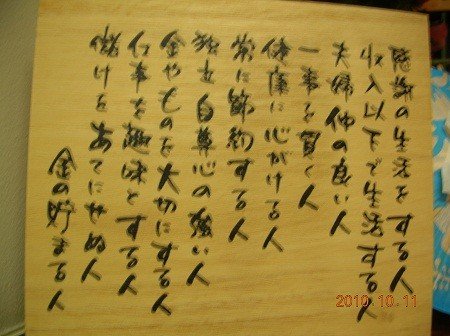 感謝の生活をする人
収入以下で生活する人
夫婦仲の良い人
一事を貫く人
健康に心がける人
常に節約する人
独立自尊心の強い人
金やものを大切にする人
仕事を趣味とする人
儲けをあてにせぬ人
金の貯まる人
2010.10.11